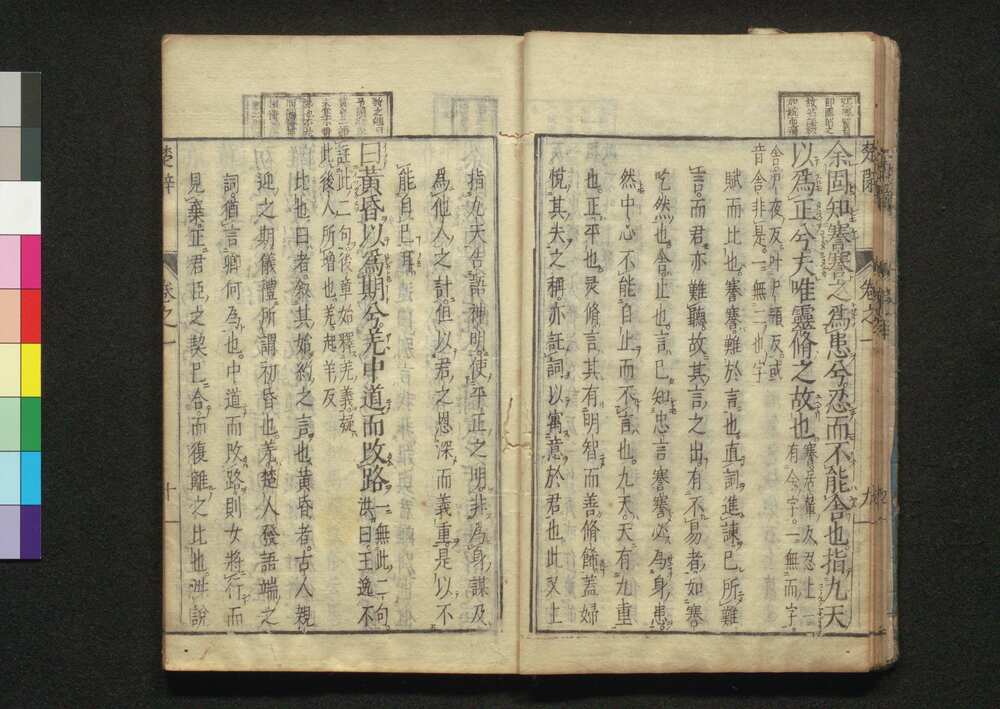 余固知謇謇之爲患兮忍而不能舍也指九天
以爲正兮夫唯靈脩之故也謇居輦反忍上一
有余字一無而字
舍尸夜反叶尸預反或
音舍非是一無二也字
賦而比也謇謇難於言也直詞進諫己所難
言而君亦難聽故其言之出有不易者如謇
吃然也舍止也言己知忠言謇謇必爲身患
然中心不能自止而不言也九天天有九重
也正平也灵脩言其有明智而善脩飾蓋婦
悅其夫之稱亦託詞以寓意於君也此又上
指九天告語神明使平正之明非爲身謀及
爲他人之計但以君之恩深而義重是以不
能自已耳
曰黃昏以爲期兮羌中道而改路一無此二句
洪曰王逸不
註此二句後章始釋羌義疑
此後人所增也羌起羊反
比也曰者叙其始約之言也黃昏者古人親
迎之期儀禮所謂初昏也羌楚人發語端之
詞猶言卿何爲也中道而改路則女將行而
見棄正君臣之契已合而復離之比也洪說
楚辭
卷之一
十